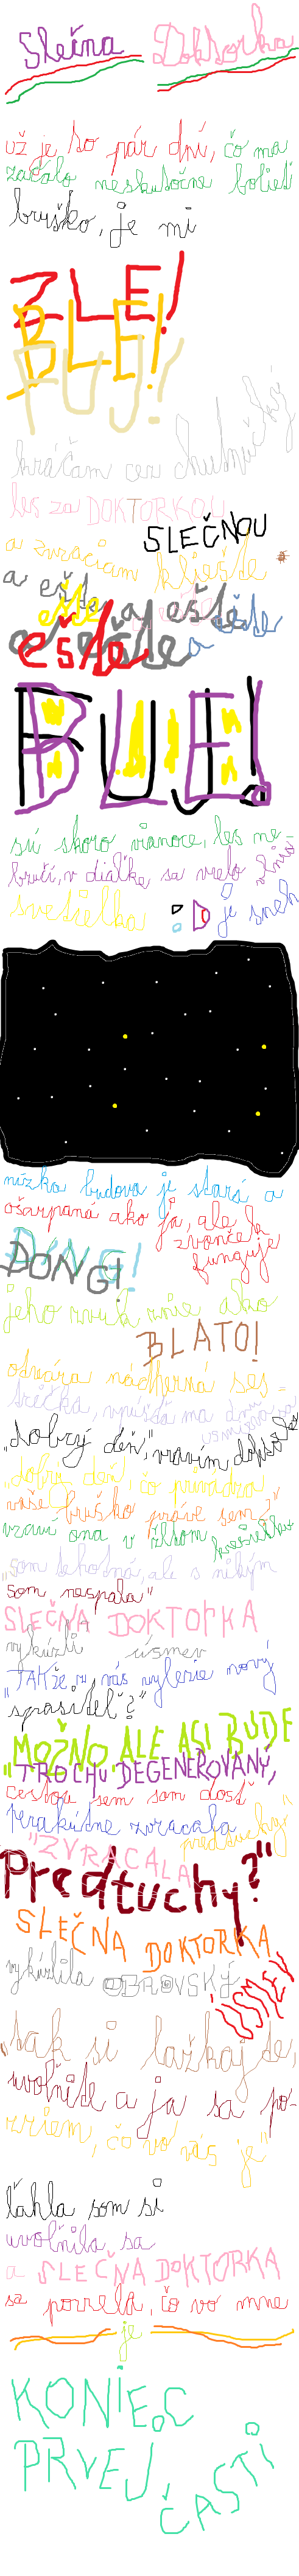 Slečna Doktorka
už je to pár dní, čo ma
začalo neskutočne bolieť
bruško, je mi
ZLE!
BLE!
FUJ!
kráčam cez chuchvučký
les za DOKTORKOU
SLEČNOU
a zvraciam kliešte
a ešte ešte a ešte ešte
ešte ešte a
BUE!
sú skoro vianoce, les me-
bručí, v diaľke sa vreto vlnia
svetielka je sneh
nízka budova je stará a
ošarpaná ako ja, ale
zvonček
funguje
DING!
DONG!
jeho zvuk znie ako
BLATO!
otvára nádherná ses-
trička, vpúšťa ma dnu
usmiata
"dobrý deň," vravím doktorke
"dobrý deň, čo privádza
vaše bruško práve sem?"
vzraví ona v žltom kresielku
"som tehotná, ale s nikým
som nespala"
SLEČNA DOKTORKA
vykúzli úsmev
"TAKže z vás vylezie nový
spasiteľ?"
"MOŽNO ALE ASI BUDE
TROCHU DEGENEROVANÝ,
cestou sem som dosť
perakútne zvracala
predtuchy"
"ZVRACALA
Predtuchy?"
SLEČNA DOKTORKA
vykúzlila OBROVSKÝ
ÚSMEV
"tak si ľažkajte,
uvoľnite a ja sa po-
zriem, čo vo vás je"
ľahla som si
uvoľnila sa
a SLEČNA DOKTORKA
sa pozrela, čo vo mne
je
KONIEC
PRVEJ
ČASTI